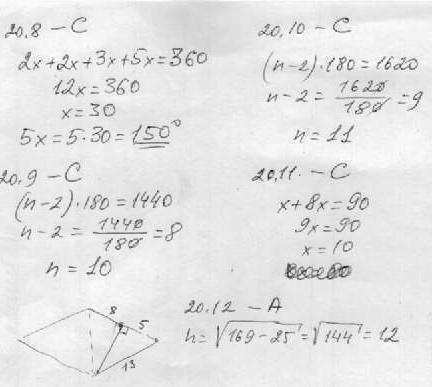 20.8 – C
2x+2x+3x+5x=360
12x=360
x=30
5x=5·30=150°
20.9 – C
(n-2)·180=1440
n-2=1440/180=8
n=10
20.10 – C
(n-2)·180=1620
n-2=1620/180=9
n=11
20.11. – C
x+8x=90
9x=90
x=10
8
5
13
20.12 – A
h=√169-25=√144=12